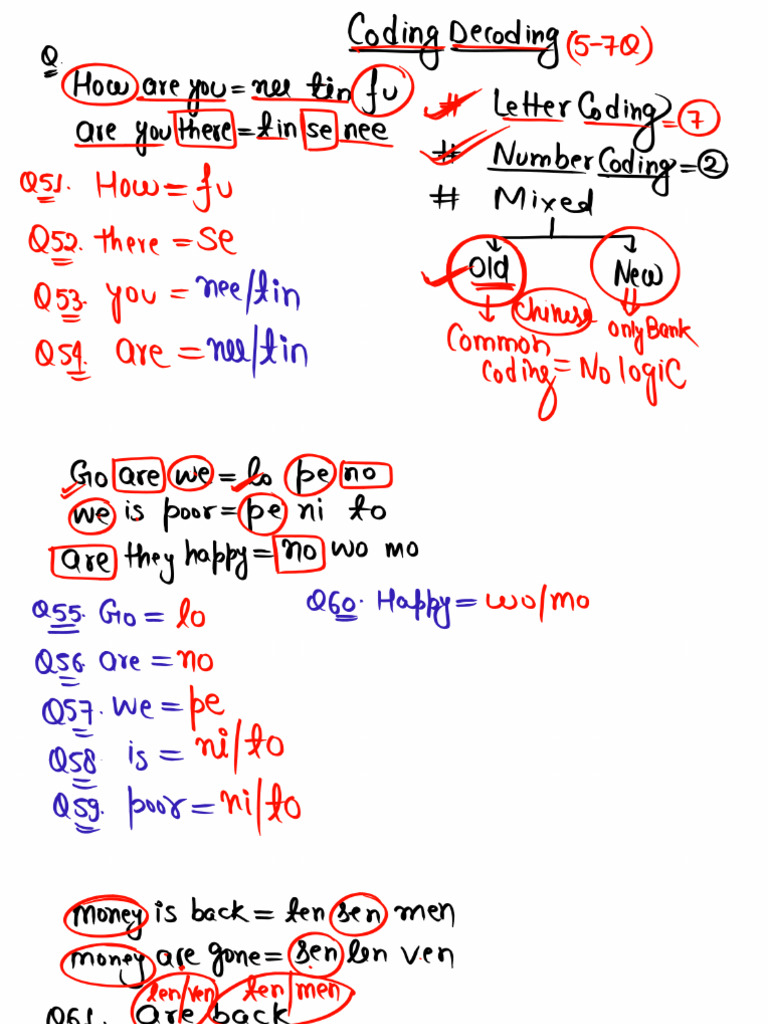 Coding Decoding (5-7Q)
Q
How are you = nee tin fu
are you there = tin se nee
Q51. How = fu
Q52. there = se
Q53. you = nee/tin
Q54. are = nee/tin
# Letter Coding = 7
# Number Coding = 2
# Mixed
Old New
Chinese
Common only Bank
coding = No logic
Go are we = lo pe no
we is poor = pe ni to
are they happy = no wo mo
Q55. Go = lo
Q56. are = no
Q57. we = pe
Q58 is = ni/to
Q59. poor = ni/to
Q60. Happy = wo/mo
money is back = ten sen men
money are gone = sen len ven
len/ven ten/men
Q61. are back